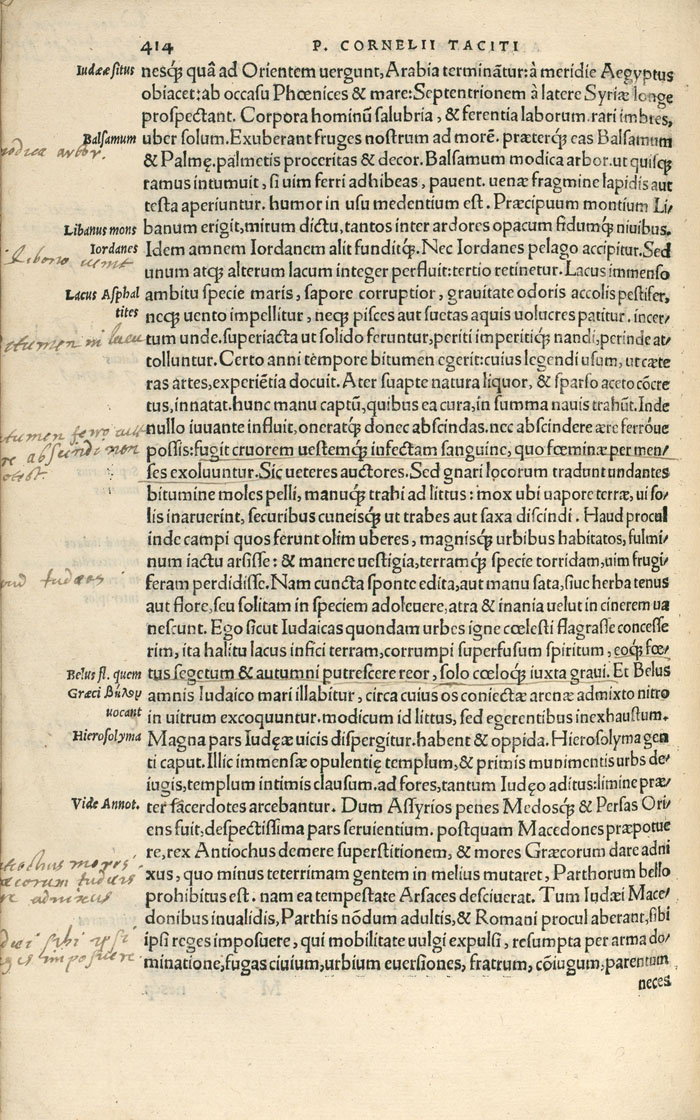 414 P. CORNELII TACITI
Iudææ situs
nesq; quâ ad Orientem uergunt, Arabia terminãtur: à meridie Aegyptus
obiacet: ab occasu Phœnices & mare: Septentrionem à latere Syriæ longe
prospectant. Corpora hominũ salubria, & ferentia laborum. rari imbres,
Balsamum
uber solum. Exuberant fruges nostrum ad morẽ. præterq; eas Balsamum
modica arbor.
& Palmę. palmetis proceritas & decor. Balsamum modica arbor. ut quisq;
ramus intumuit, si uim ferri adhibeas, pauent. uenæ fragmine lapidis aut
testa aperiuntur. humor in usu medentium est. Præcipuum montium Li/
Libanus mons
banum erigit, mirum dictu, tantos inter ardores opacum fidumq; niuibus.
Iordanes
Idem amnem Iordanem alit funditq;. Nec Iordanes pelago accipitur. Sed
unum atq; alterum lacum integer perfluit: tertio retinetur. Lacus immenso
Lacus Asphal
tites
ambitu specie maris, sapore corruptior, grauitate odoris accolis pestifer,
neq; uento impellitur, neq; pisces aut suetas aquis uolucres patitur. incer/
bitumen in lacu
tum unde. superiacta ut solido feruntur, periti imperitiq; nandi, perinde at/
tolluntur. Certo anni tempore bitumen egerit: cuius legendi usum, ut cæte
ras artes, experiẽtia docuit. Ater suapte natura liquor, & sparso aceto cõcre
tus, innatat. hunc manu captũ, quibus ea cura, in summa nauis trahũt. Inde
nullo iuuante influit, oneratq; donec abscindas. nec abscindere ære ferróue
re abscindi non
possis: fugit cruorem uestemq; infectam sanguine, quo fœminæ per men/
ses exoluuntur. Sic ueteres auctores. Sed gnari locorum tradunt undantes
bitumine moles pelli, manuq; trahi ad littus: mox ubi uapore terræ, ui so/
lis inaruerint, securibus cuneisq; ut trabes aut saxa discindi. Haud procul
inde campi quos ferunt olim uberes, magnisq; urbibus habitatos, fulmi/
num iactu arsisse: & manere uestigia, terramq; specie torridam, uim frugi/
feram perdidisse. Nam cuncta sponte edita, aut manu sata, siue herba tenus
aut flore, seu solitam in speciem adoleuere, atra & inania uelut in cinerem ua
nescunt. Ego sicut Iudaicas quondam urbes igne cœlesti flagrasse concesse
rim, ita halitu lacus infici terram, corrumpi superfusum spiritum, eoq; fœ/
Belus fl. quem
Græci Βήλον
uocant
tus segetum & autumni putrescere reor, solo cœloq; iuxta graui. Et Belus
amnis Iudaico mari illabitur, circa cuius os coniectæ arenæ admixto nitro
in uitrum excoquuntur. modicum id littus, sed egerentibus inexhaustum.
Hierosolyma
Magna pars Iudęæ uicis dispergitur. habent & oppida. Hierosolyma gen
ti caput. Illic immensæ opulentię templum, & primis munimentis urbs de/
iugis, templum intimis clausum. ad fores, tantum Iudęo aditus: limine præ/
Vide Annot.
ter sacerdotes arcebantur. Dum Assyrios penes Medosq; & Persas Ori/
ens fuit, despectissima pars seruientium. postquam Macedones præpotue
re, rex Antiochus demere superstitionem, & mores Græcorum dare adni
xus, quo minus teterrimam gentem in melius mutaret, Parthorum bello
prohibitus est. nam ea tempestate Arsaces desciuerat. Tum Iudæi Mace/
donibus inualidis, Parthis nõdum adultis, & Romani procul aberant, sibi
ipsi reges imposuere, qui mobilitate uulgi expulsi, resumpta per arma do/
minatione, fugas ciuium, urbium euersiones, fratrum, cõiugum, parentum
neces